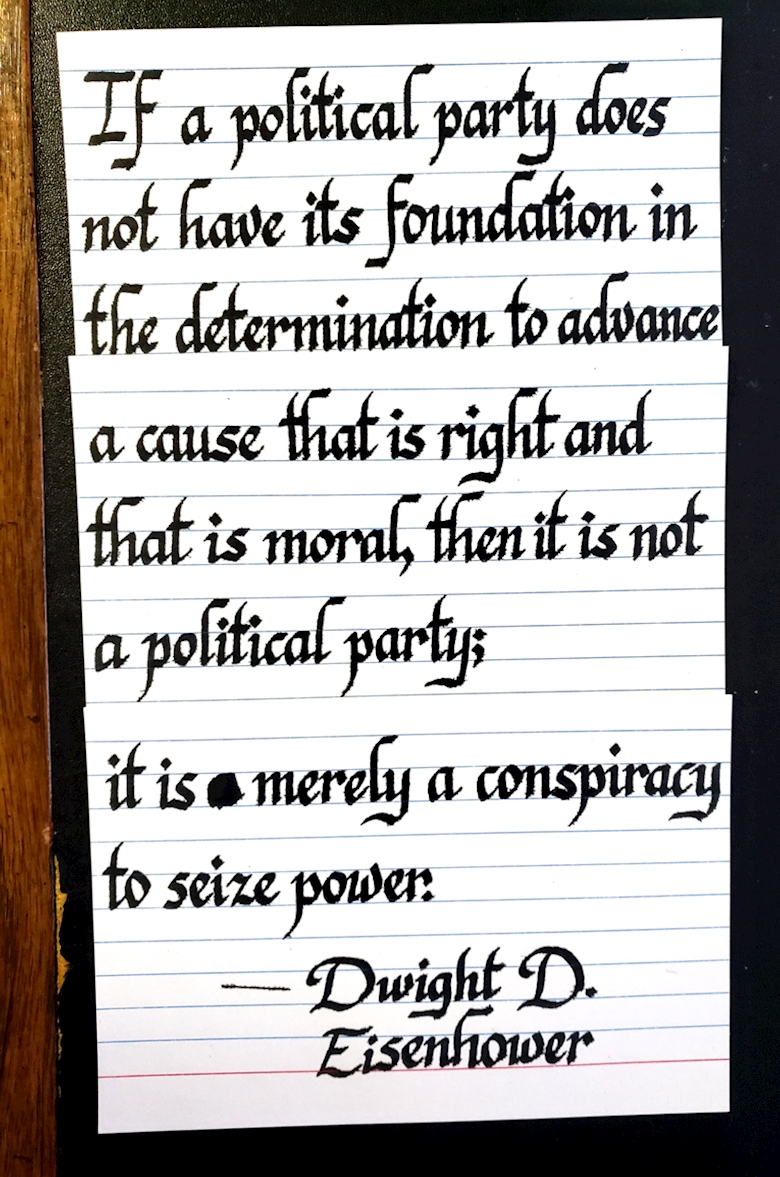 If a political party does
not have its foundation in
the determination to advance
a cause that is right and
that is moral, then it is not
a political party;
it is merely a conspiracy
to seize power.
— Dwight D.
Eisenhower